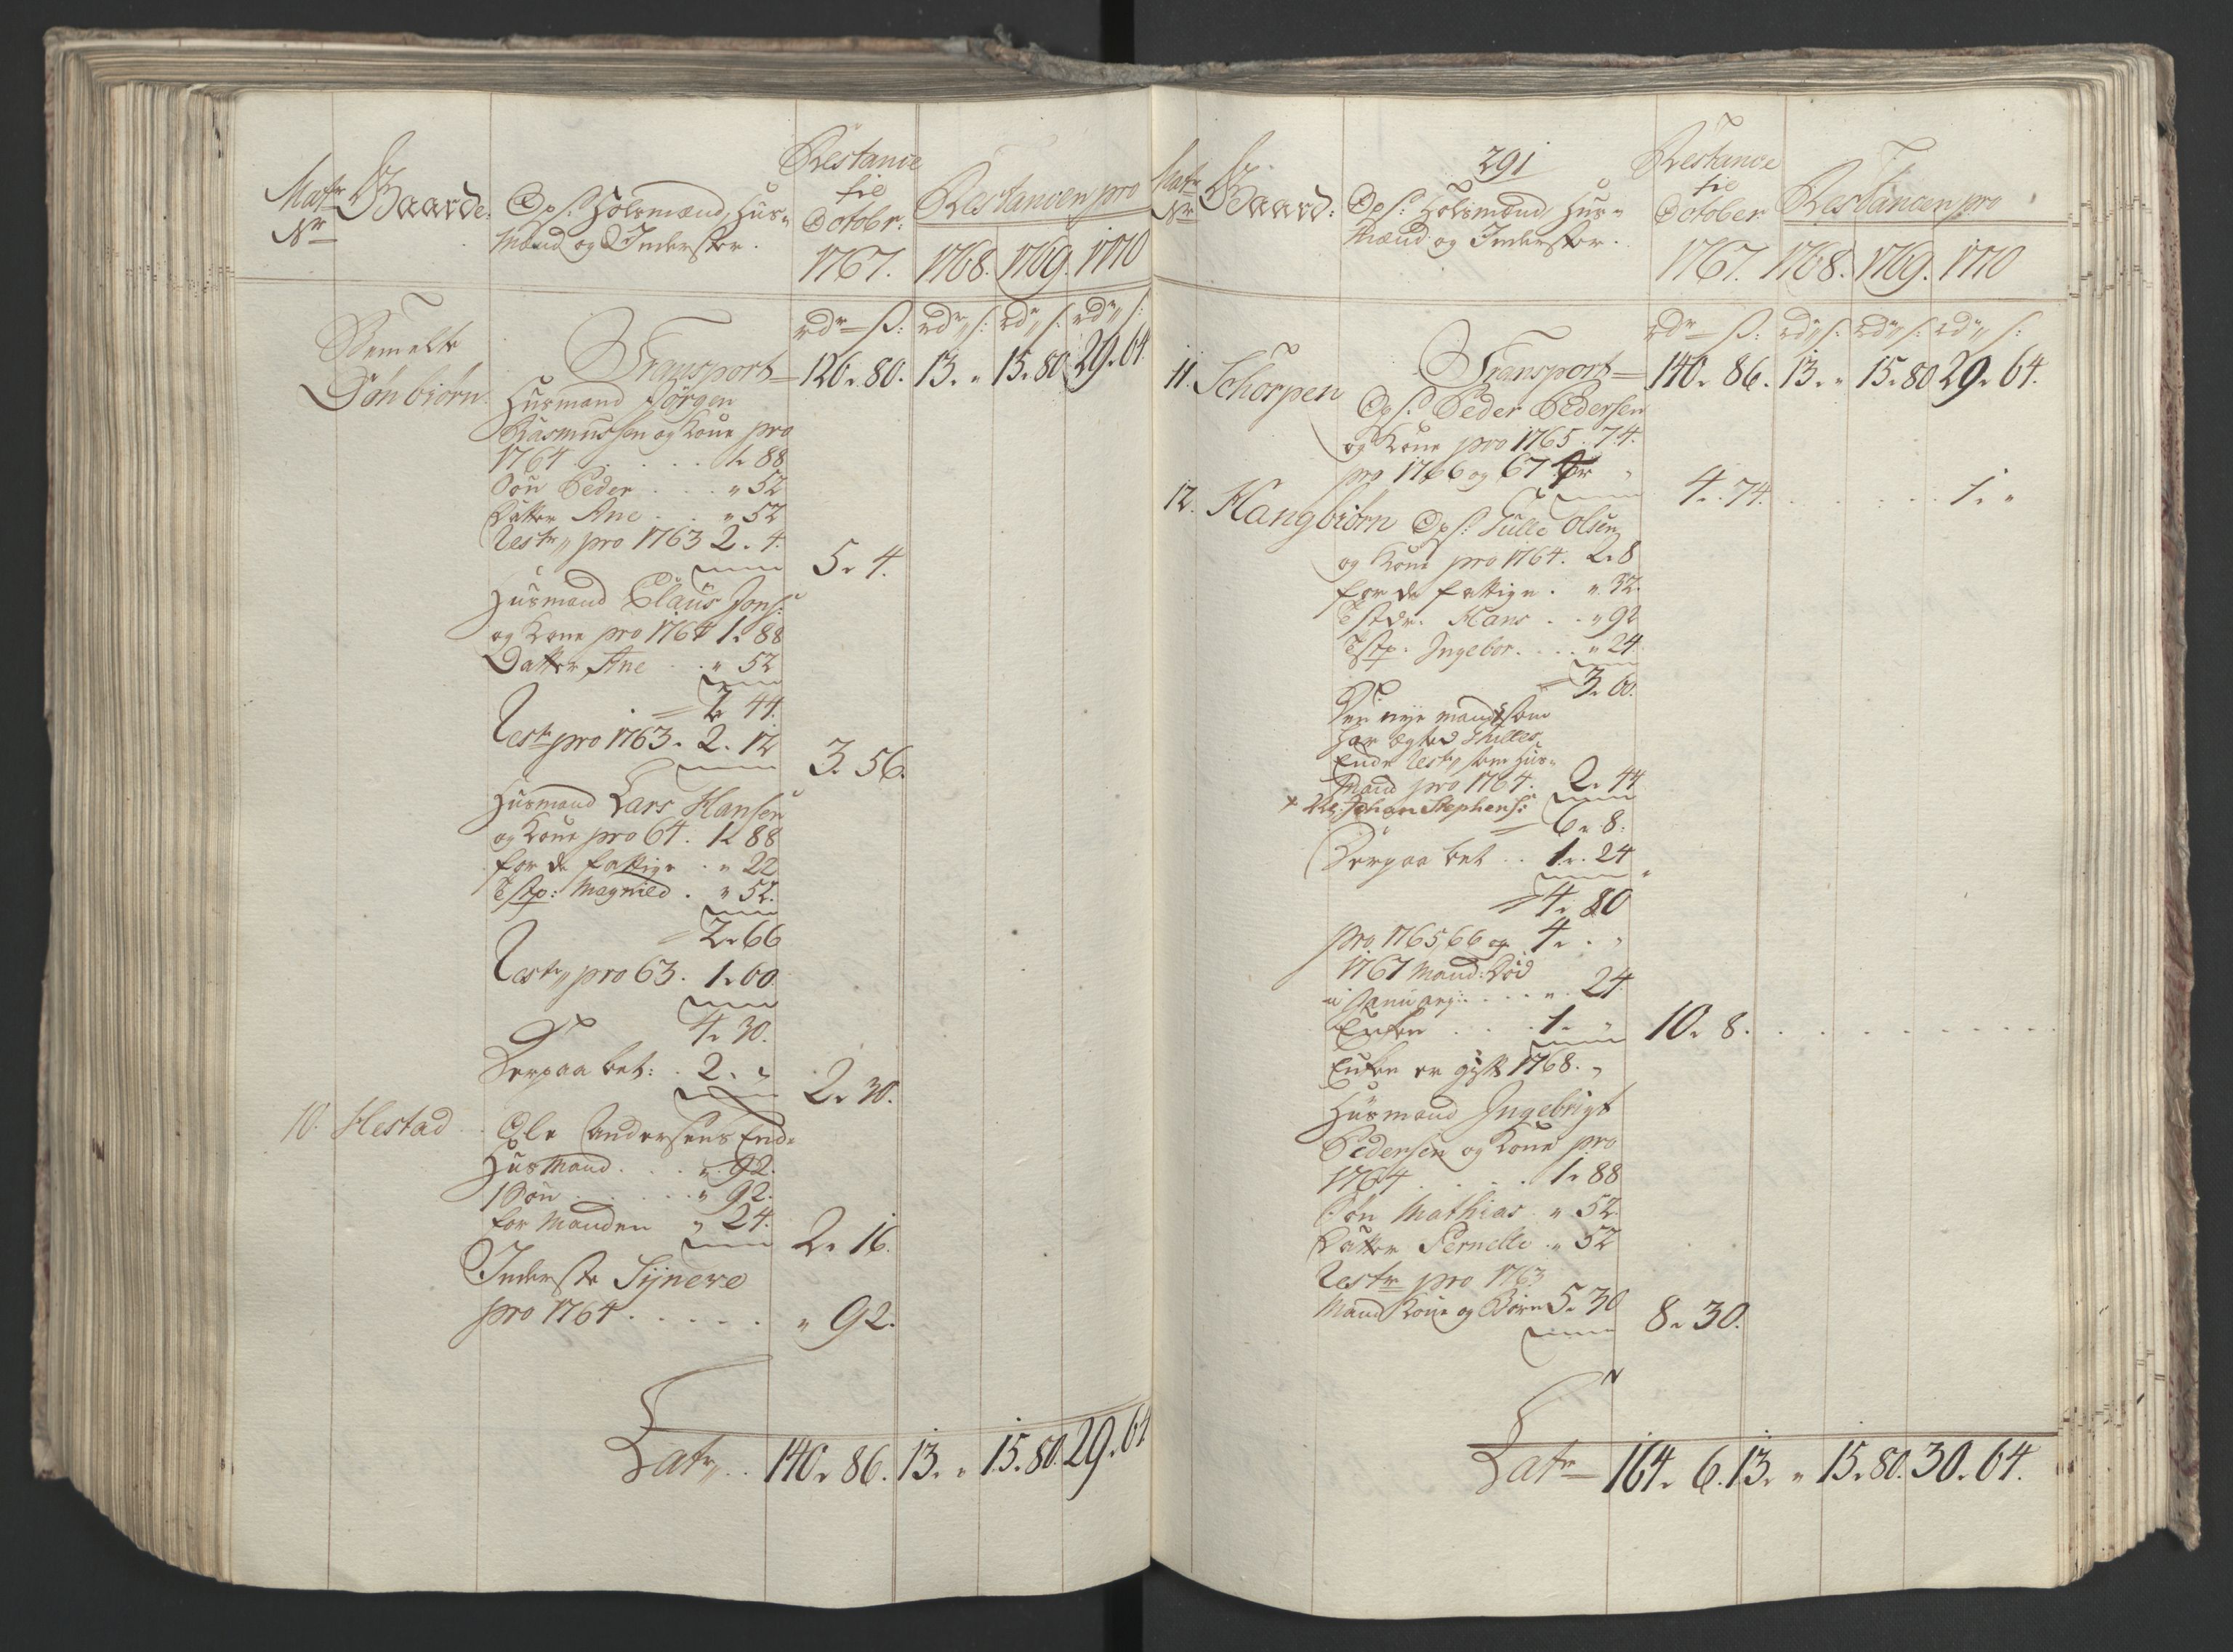 Matr Nr
Gaarde:
Ops: Holsmænd, Huus-
mænd og Inderster.
Restance
til
October:
1767.
Restancen pro
1768. 1769. 1770
rdr ß: rdr ß: rdr ß: rdr ß:
Bemelte
Sønbiørn
Transport 126. 80. 13. " 15. 80 29. 64.
Huusmand Jörgen
Rasmussen og Kone pro
1764 . . . . 1. 88
Søn Peder . . . " 52
Datter Ane . . " 52
Restr pro 1763 2. 4. 5. 4.
Huusmand Claüs Jons:
og Kone pro 1764 1. 88
Datter Ane . . " 52
2. 44.
Restr pro 1763. 2. 12 3. 56.
Huusmand Lars Hansen
og Kone pro 64. 1. 88
for de fattige . " 22
Magnild . " 52.
2. 66
Restr pro 63. 1. 60.
4. 30.
Derpaa bet: . 2. " 2. 30.
10. Hestad Ole Andersens Enke
Huusmand . . . " 92.
1 Søn . . . . " 92.
for Manden " 24. 2. 16.
Inderste Sijnere
pro 1764 . . . . . " 92.
Latr . . 140. 86. 13. " 15. 80. 29. 64
291
Matr Nr
Gaard:
Ops: Holsmænd, Huus-
mænd og Inderster.
Restance
til
October
1767.
Restancen pro
1768. 1769. 1770
rdr ß: rdr ß: rdr ß: rdr ß:
Transport 140. 86. 13. " 15. 80 29. 64.
11. Schorpen Ops: Peder Pedersen
og Kone pro 1765. 74.
pro 1766 og 67 4. " 4. 74. . . . . . 1. "
12. Hangbiörn Ops: Tulle Olsen
og Kone pro 1764. 2. 8
for de fattige . " 32.
Hans . . " 92
Ingebor. . . . " 24.
3. 60.
Den nye mand som
har ægted Thulles
Enke Restr som Huus-
Mand pro 1764. 2. 44
Johan Stephens:
6. 8.
Derpaa bet . . 1. 24
4. 80
pro 1765, 66 og 4. . "
1767 Mand: død
i Januarij . . . . " 24
Enken . . . . 1. " 10. 8. . . . . . .
Enken er gift 1768. "
Huusmand Ingebrigt
Pedersen og Kone pro
1764 . . . . . 1. 88
Søn Mathias . " 52.
Datter Pernelle . " 52
Restr pro 1763
Mand Kone og Börn 5. 30 8. 30.
Latr 164. 6. 13. " 15. 80. 30. 64.